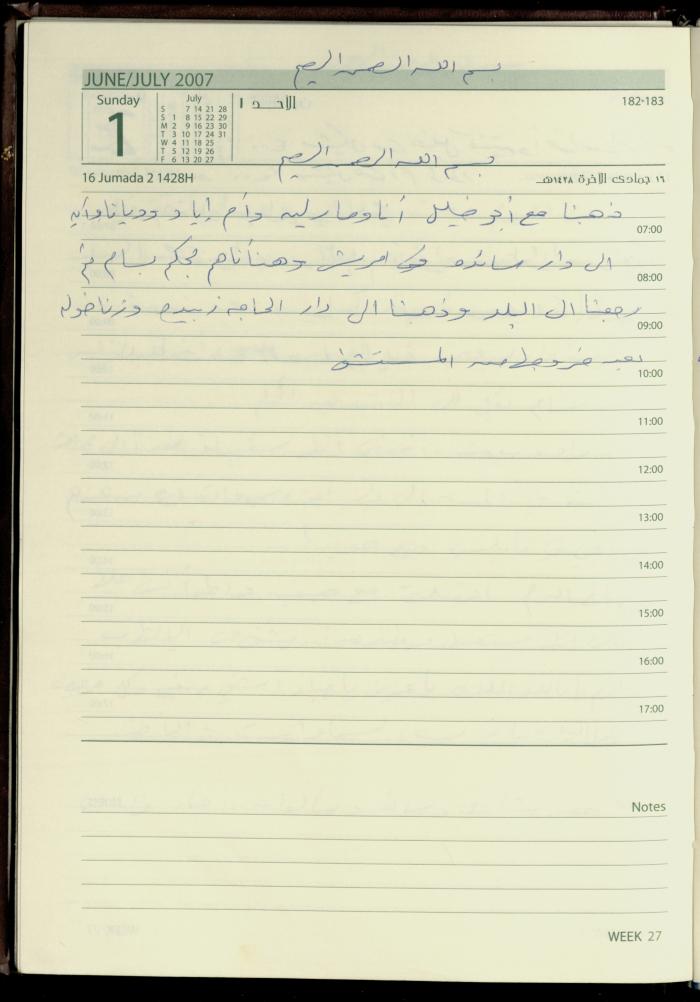 بسم الله الرحمن الرحيم
JUNE/JULY 2007
Sunday
1
July
S 7 14 21 28
S 1 8 15 22 29
M 2 9 16 23 30
T 3 10 17 24 31
W 4 11 18 25
T 5 12 19 26
F 6 13 20 27
الأحد ١
182-183
بسم الله الرحمن الرحيم
16 Jumada 2 1428H
١٦ جمادى الآخرة ١٤٢٨هـ
ذهبنا مع أبو خليل أنا ومارليه وأم إياد وديانا وآيه
07:00
الى دار سائده في امريش وهنأناهم بسام ثم
08:00
رجعنا الى البلد وذهبنا الى دار الحاجه زبيده وزرنا خوله
09:00
بعد خروجها من المستشفى
10:00
11:00
12:00
13:00
14:00
15:00
16:00
17:00
Notes
WEEK 27